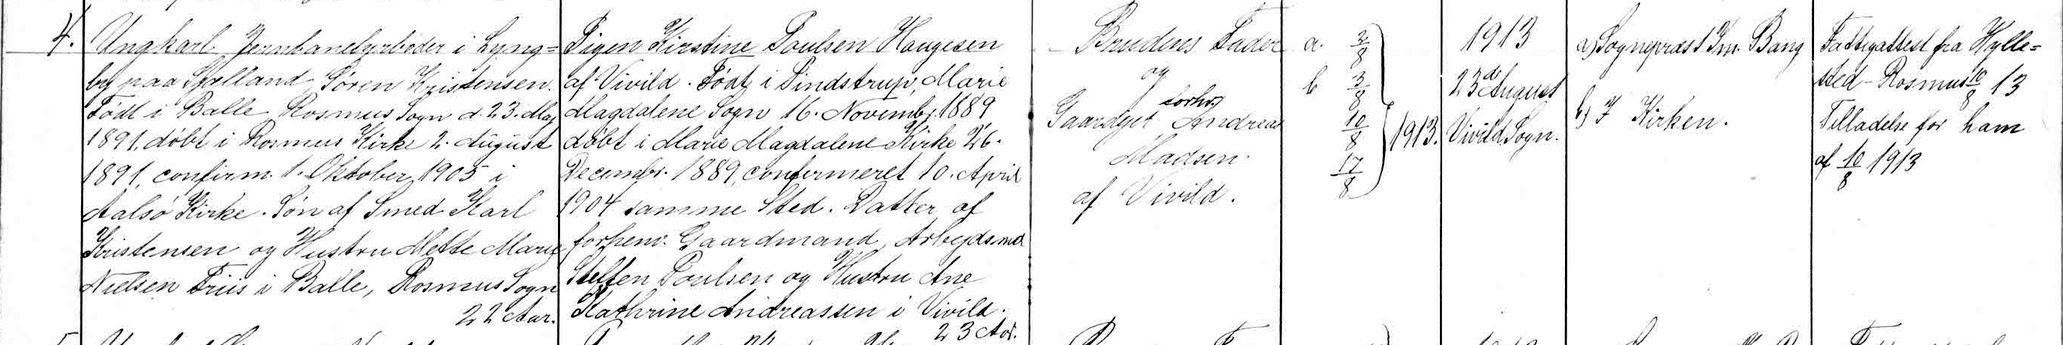 4.
Ungkarl Jernbanearbeder i Lyng=
by paa Sjælland, Søren Kristensen.
Født i Balle, Rosmus Sogn d. 23. Maj
1891, døbt i Rosmus Kirke 2. August
1891, confirm. 1. Oktober 1905 i
Aalsø Kirke. Søn af Smed Karl
Kristensen og Hustru Mette Marie
Nielsen Friis i Balle, Rosmus Sogn
22 Aar.
Pigen Kirstine Poulsen Haugesen
af Vivild. Født i Pindstrup, Marie
Magdalene Sogn 16. Novemb. 1889
døbt i Marie Magdalene Kirke 26.
Decembr. 1889, confirmeret 10. April
1904 samme Sted. Datter af
forhenv. Gaardmand, Arbejdsmd
Steffen Poulsen og Hustru Ane
Kathrine Andreassen i Vivild.
23 Aar.
Brudens Fader
og
forhv
Gaardejer Andreas
Madsen
af Vivild.
a. 3/8
b 3/8
10/8
17/8
1913.
1913
23d August
Vivild Sogn.
a) Sognepræst Im. Bang
b) I Kirken.
Fattigattest fra Hylle=
sted-Rosmus 10/8 13
Tilladelse for ham
af 10/8 1913